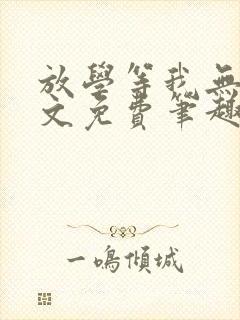 放學等我無
文免費筆趣
一鳴傾城